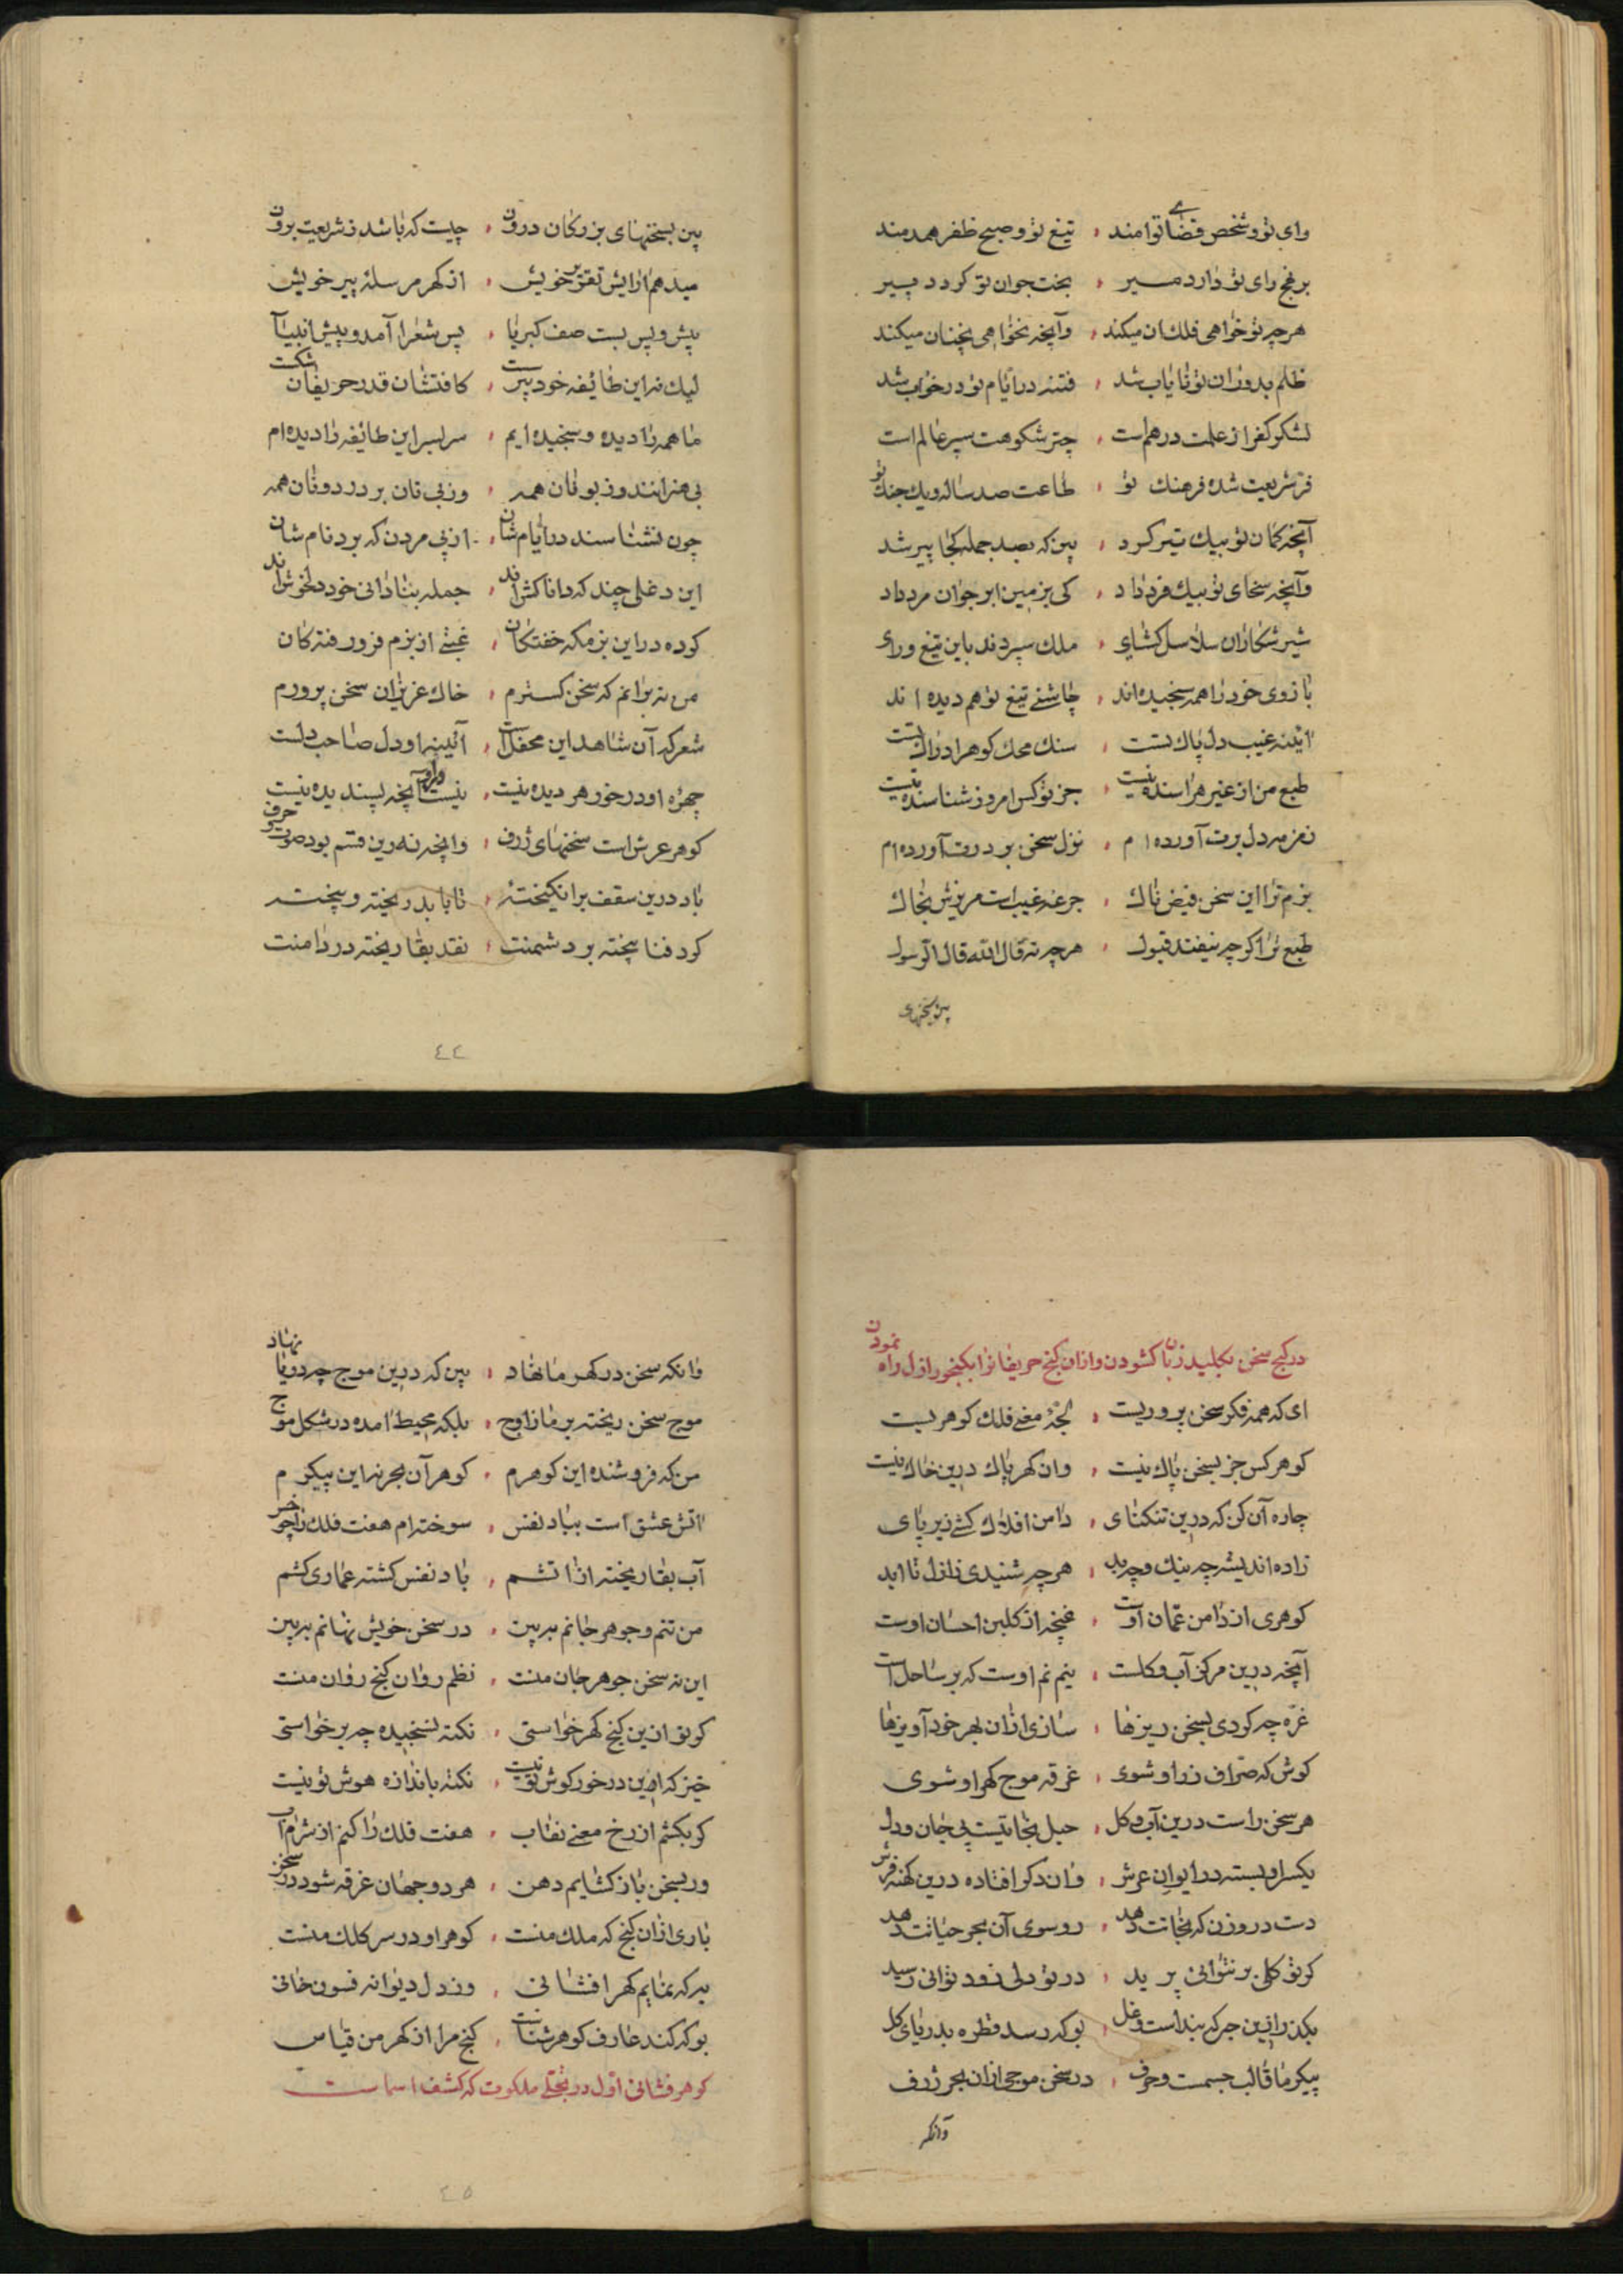 رای تو و شخص قضا توامند ، تیغ تو و صبح ظفر همدمند
بر نهج رای تو دارد مسیر ، بخت جوان تو کردد پسیر
هرچه تو خواهی فلک ان میکند ، وآنچه نخواهی نچنان میکند
ظلم بدوران تو نایاب شد ، فتنه در ایام تو در خواب شد
لشکر کفر از علمت درهم است ، چتر شکوهت سپر عالم است
فر شریعت شده فرهنك تو ، طاعت صد ساله و یك جنك تو
آنچه کمان تو بیك تیر کرد ، بین که بصد جمله کجا پیر شد
وآنچه سخای تو بیك فرد داد ، کی بزمین ابر جوانمرد داد
شیر شکاران سلاسل کشای ، ملك سپردند باین تیغ و رای
بازوی خود را همه سنجیده اند ، چاشنی تیغ تو هم دیده اند
ائینه غیب دل پاك تست ، سنك محك کوهر ادراك تست
طبع من از غیر هراسنده نیست ، جز تو کس امروز شناسنده نیست
زمزمه دل برت آورده ام ، نزل سخن بر درت آورده ام
بزم ترا این سخن فیض ناك ، جرعه غیب است مریزش بخاك
طبع ترا کرچه نیفتد قبول ، هرچه نه قال الله قال الرسول
بین سخنهای
بین بسخنهای بزرکان درون ، چیست که باشد ز شریعت برون
میدهم آرایش تقریر خویش ، از کهر مرسله پیر خویش
پیش و پس بست صف کبریا ، پس شعرا آمد و پیش انبیآ
لیك نه این طائفه خود پرست ، کافتشان قدر حریفان شکست
ما همه را دیده و سنجیده ایم ، سر بسر این طائفه را دیده ام
بی هنرانند و زبونان همه ، وز پی نان بر در دونان همه
چون نشناسند در ایام شان ، از پی مردن که برد نام شان
این دغلی چند که دانا کش اند ، جمله بنادانی خود دلخوش اند
کرده در این بزمکه خفتکان ، غیبتی از بزم فرو رفتکان
من نه برانم که سخن کسترم ، خاك عزیزان سخن پرورم
شعر که آن شاهد این محفل است ، آئینه او دل صاحب دلست
چهره او در خور هر دیده نیست ، نیست در او آنچه پسندیده نیست
کوهر عرش است سخنهای ژرف ، وانچه نه زین قسم بود صوت و حرف
باد درین سقف برانکیخته ، تا بابد ریخته و بیخته
کرد فنا بیخته بر دشمنت ، نقد بقا ریخته در دامنت
٤٤
در کنج سخن بکلید زبان کشودن و ازان کنج حریفانرا بکنجور ازل راه نمودن
ای که همه فکر سخن پروریست ، لجه معنی فلك کوهریست
کوهر کس جز بسخن پاك نیست ، وان کهر پاك درین خاك نیست
چاره آن کن که درین تنکنای ، دامن افلاك کشی زیر پای
زاده اندیشه چه نیك و چه بد ، هرچه شنیدی ز ازل تا ابد
کوهری از دامن عمان اوست ، غنچه از کلبن احسان اوست
آنچه درین مرکز آب و کلست ، نیم نم اوست که بر ساحل است
غره چه کردی بسخن ریزها ، سازی ازان بهر خود آویزها
کوش که صراف زر او شوی ، غرقه موج کهر او شوی
هر سخن راست درین آب و کل ، حبل نجاتیست پی جان و دل
یکسر او بسته در ایوان عرش ، وان دکر افتاده درین کهنه فرش
دست درو زن که نجاتت دهد ، رو سوی آن بحر حیاتت دهد
کر تو کلی بر نتوانی پرید ، در تو دلی زود توانی رسید
بکذر ازین جر که بند است و غل ، بو که رسد قطره بدریای کل
پیکر ما قالب جسمست و حرف ، در سخن موجی ازان بحر ژرف
وآنکه
وانکه سخن در کهر ما نهاد ، بین که درین موج چه دریا نهاد
موج سخن ریخته بر ما ز اوج ، بلکه محیط آمده در شکل موج
من که فروشنده این کوهرم ، کوهر آن بحر نه این پیکرم
اتش عشق است بباد نفس ، سوخته ام هفت فلك را چو خس
آب بقا ریخته از اتشم ، باد نفس کشته عماری کشم
من تنم و جوهر جانم ببین ، در سخن خویش نهانم ببین
این نه سخن جوهر جان منست ، نظم روان کنج روان منست
کر تو ازین کنج کهر خواستی ، نکته نسنجیده چه بر خواستی
خیز که این در خور کوش تو نیست ، نکته باندازه هوش تو نیست
کر بکشم از رخ معنی نقاب ، هفت فلك را کنم از شرم آب
ور بسخن باز کشایم دهن ، هر دو جهان غرقه شود در سخن
باری ازان کنج که ملك منست ، کوهر او در سر کلك منست
به که نمایم کهر افشانی ، وز دل دیوانه فسون خانی
بو که کند عارف کوهر شناس ، کنج مرا از کهر من قیاس
کوهر فشانی اول در تجلی ملکوت که کشف اسماست
٤٥